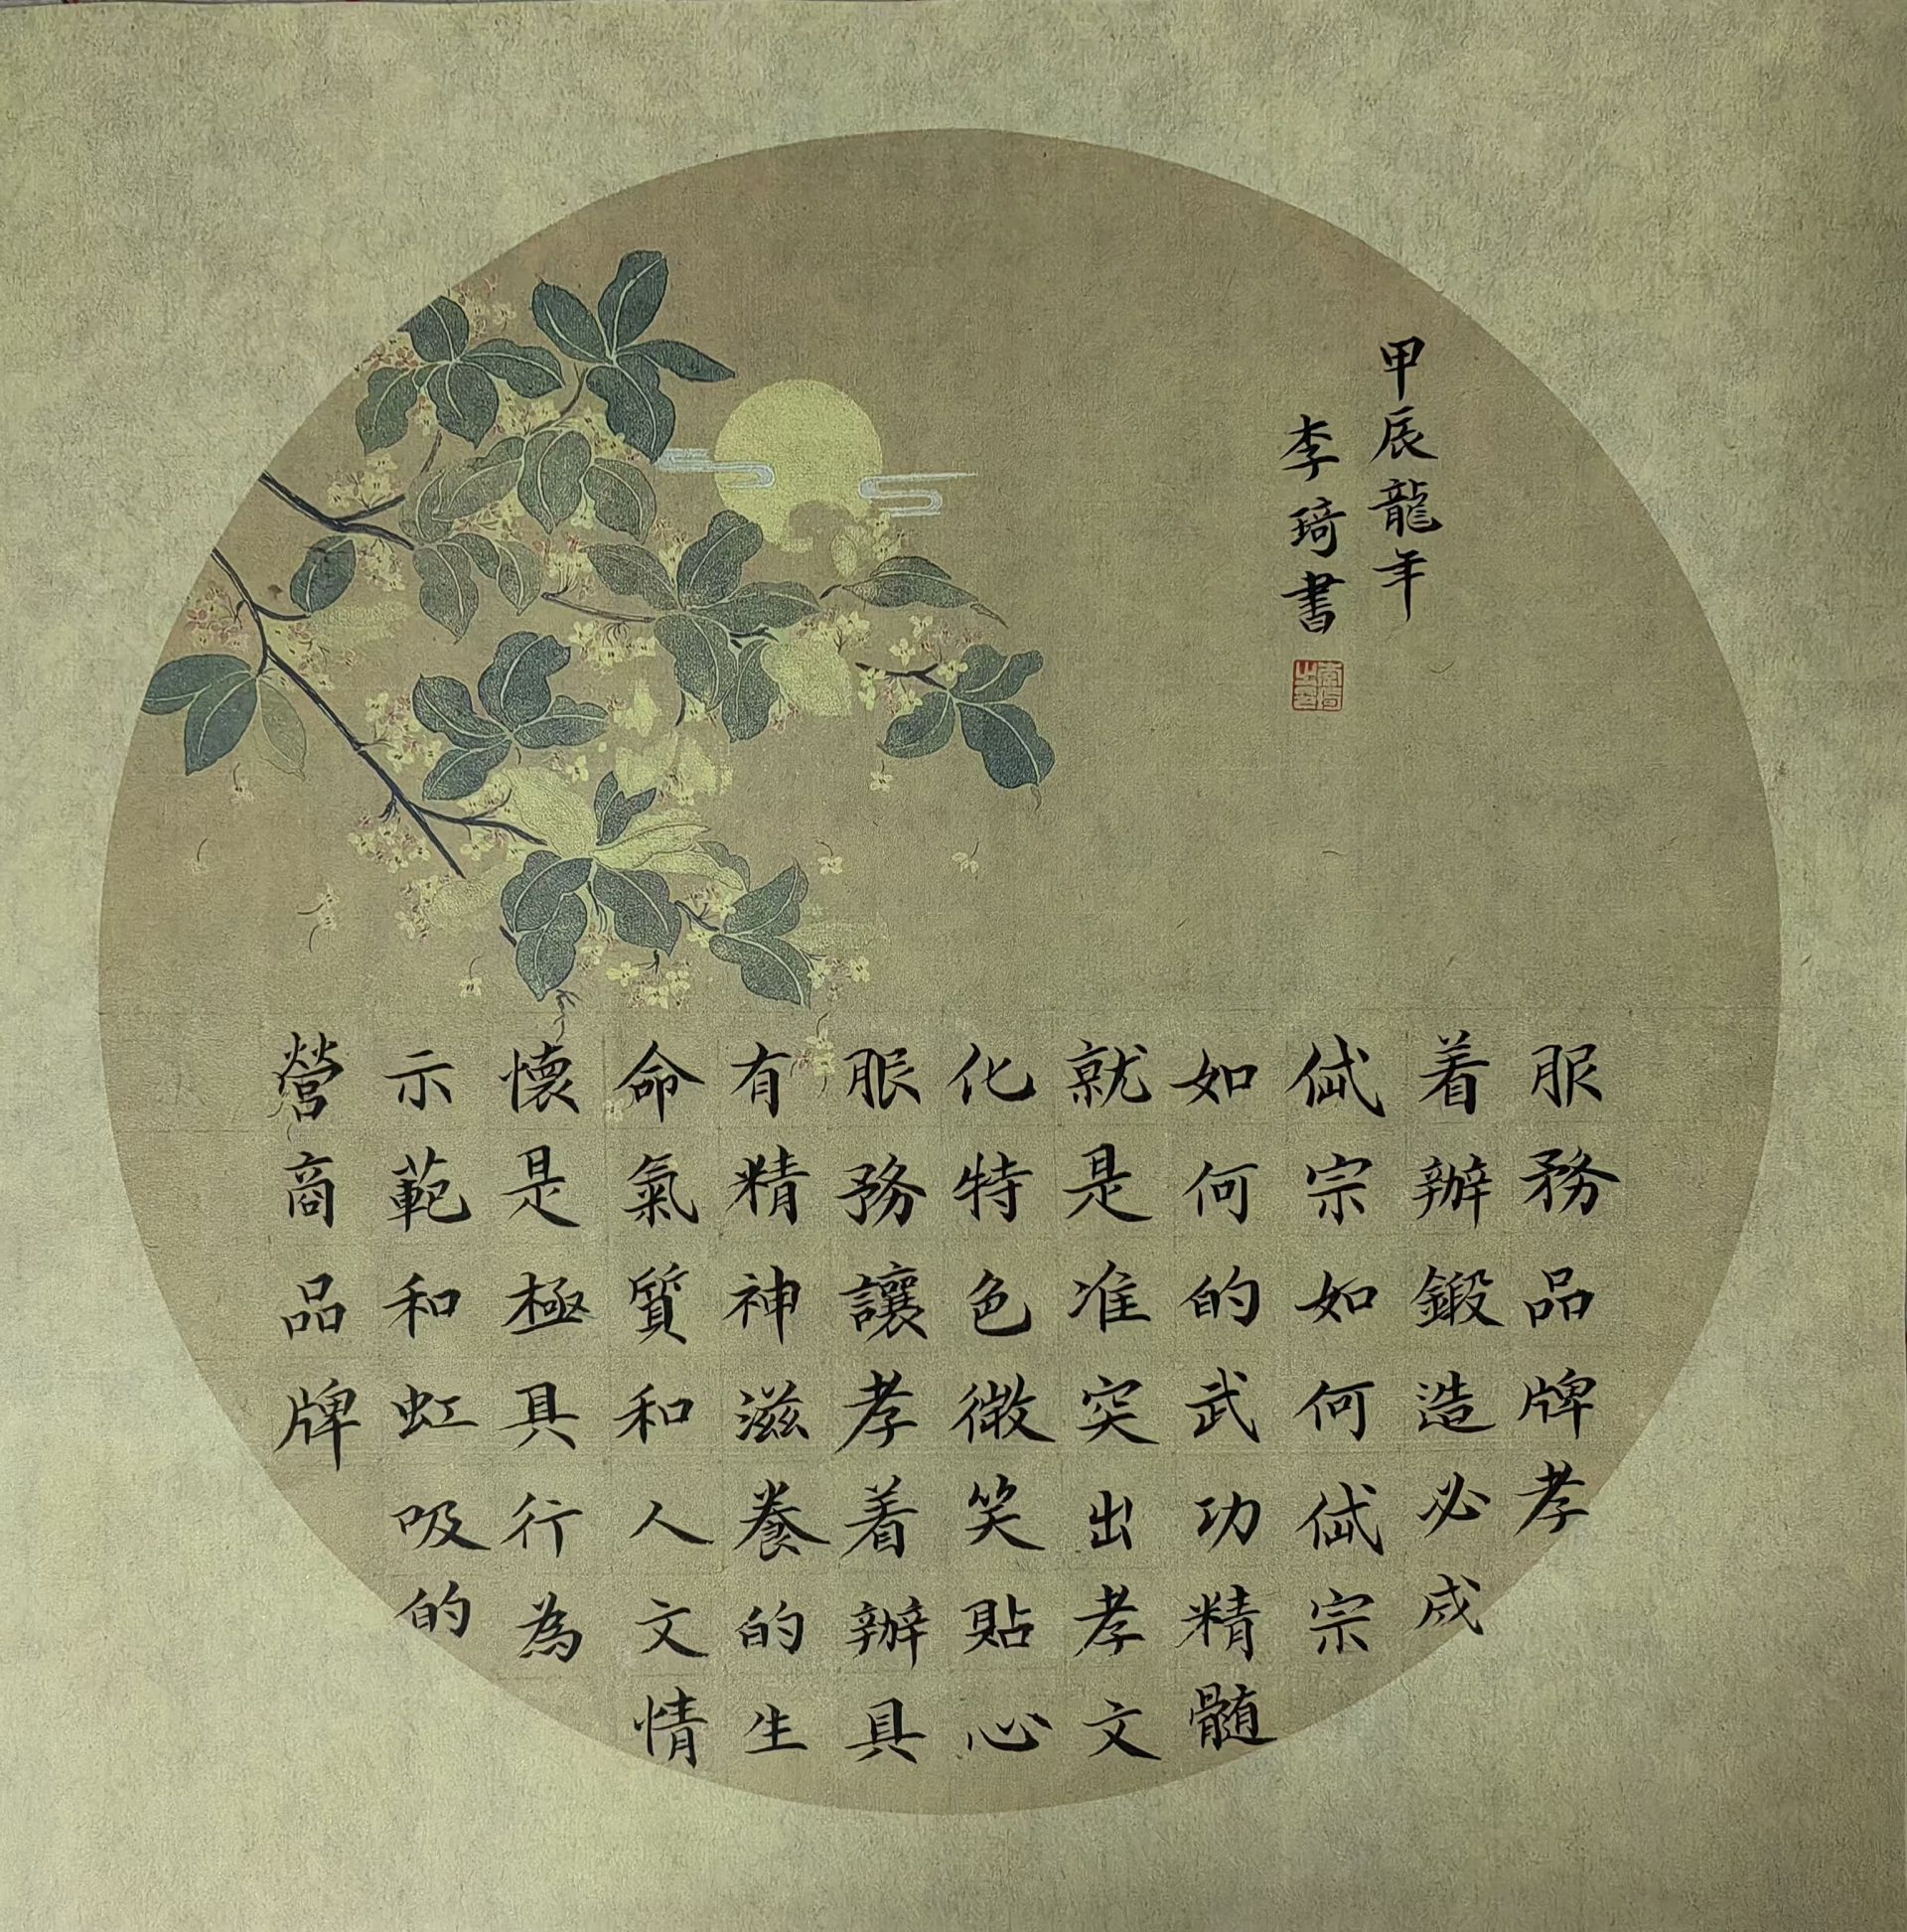 服務品牌孝
着辦鍛造必成
岱宗如何岱宗
如何的武功精髓
就是准突出孝文
化特色微笑貼心
服務讓孝着辦具
有精神滋養的生
命氣質和人文情
懷是極具行為
示範和虹吸的
營商品牌
甲辰龍年
李琦書